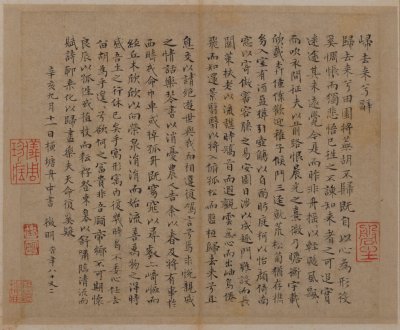 歸去來兮辭
歸去來兮田園將蕪胡不歸既自以心為形役
奚惆悵而獨悲悟已往之不諫知來者之可追實
迷途其未遠覺今是而昨非舟搖搖以輕颺風飄飄
而吹衣問征夫以前路恨晨光之熹微乃瞻衡宇載
欣載奔僮僕歡迎稚子候門三逕就荒松菊猶存攜
幼入室有酒盈樽引壺觴以自酌眄庭柯以怡顏倚南
窗以寄傲審容膝之易安園日涉以成趣門雖設而長
關策扶老以流憩時矯首而遐觀雲無心而出岫鳥倦
飛而知還景翳翳以將入撫孤松而盤桓歸去來兮且
息交以絕遊世與我而相遺復駕言兮焉求悅親戚
之情話樂琴書以消憂農人告余以春及將有事於
西疇或命巾車或棹孤舟既窈窕以尋壑亦崎嶇而
經丘木欣欣以向榮泉涓涓而始流善萬物之得時
感吾生之行休已矣乎寓形宇內復幾時曷不委心任去
留胡為乎遑遑兮欲何之富貴非吾願帝鄉不可期懷
良辰以孤往或植杖而耘耔登東皋以舒嘯臨清流而
賦詩聊乘化以歸盡樂夫天命復奚疑
辛亥九月十一日橫塘舟中書 徵明 時年八十又二